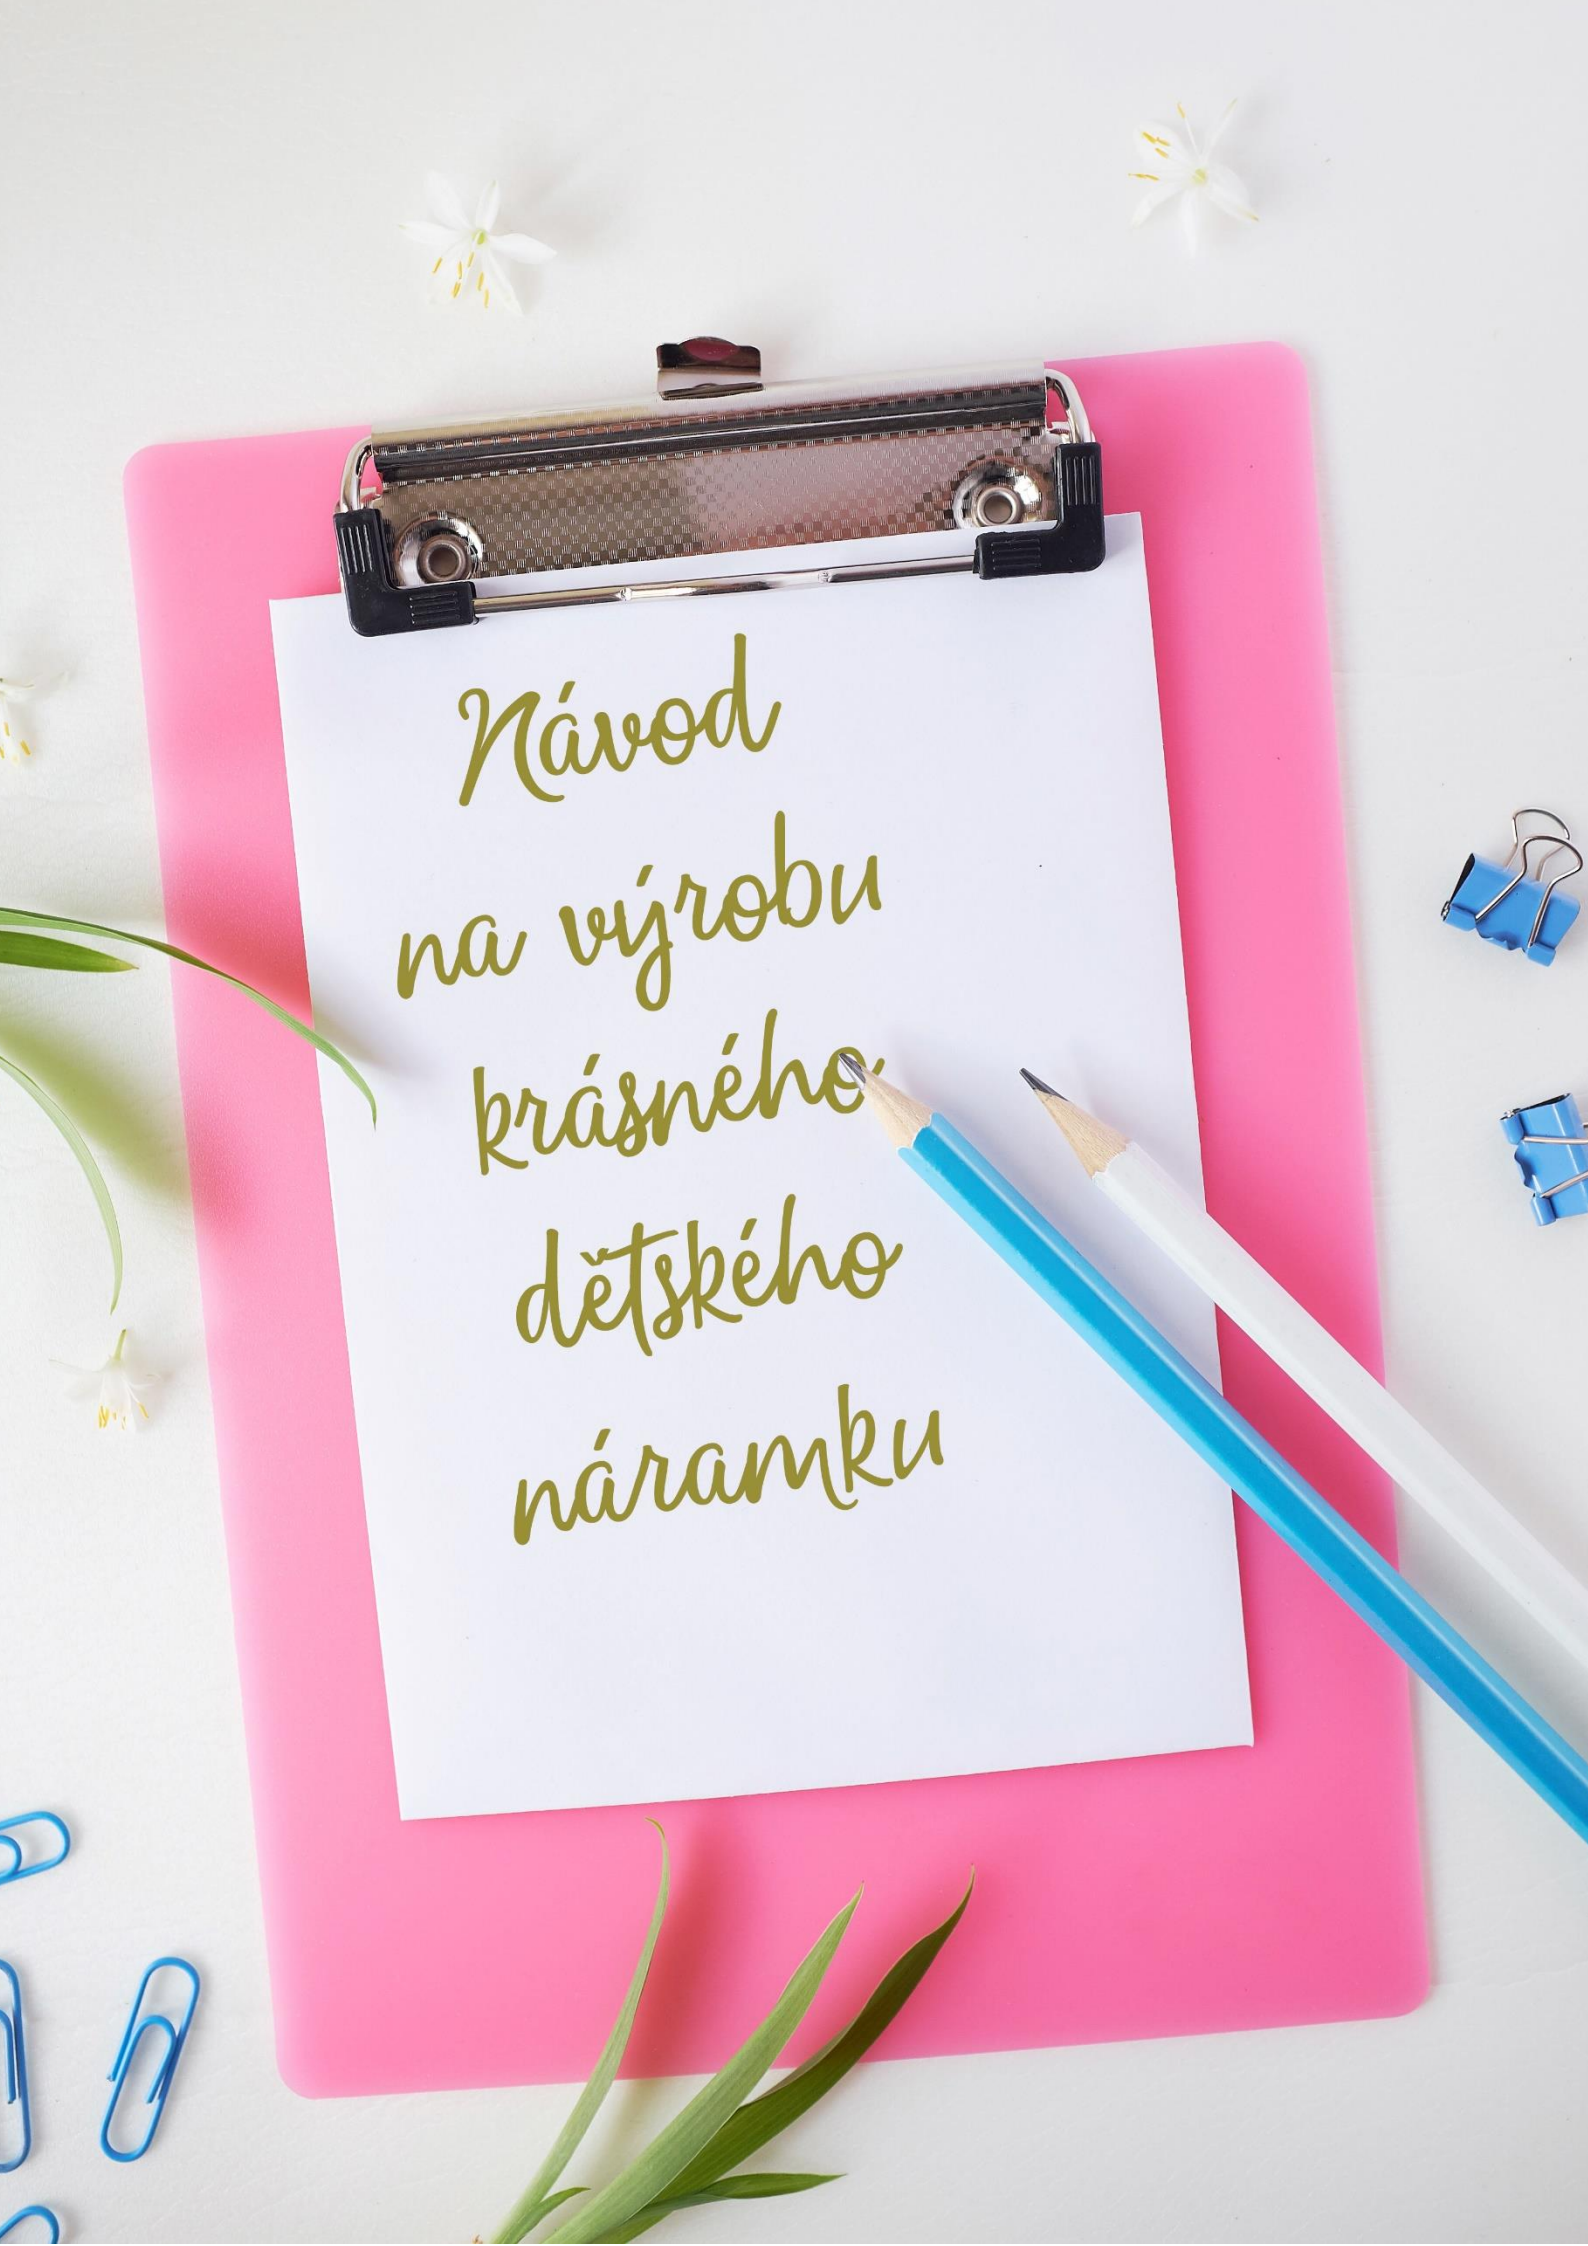 Návod
na výrobu
krásného
dětského
náramku